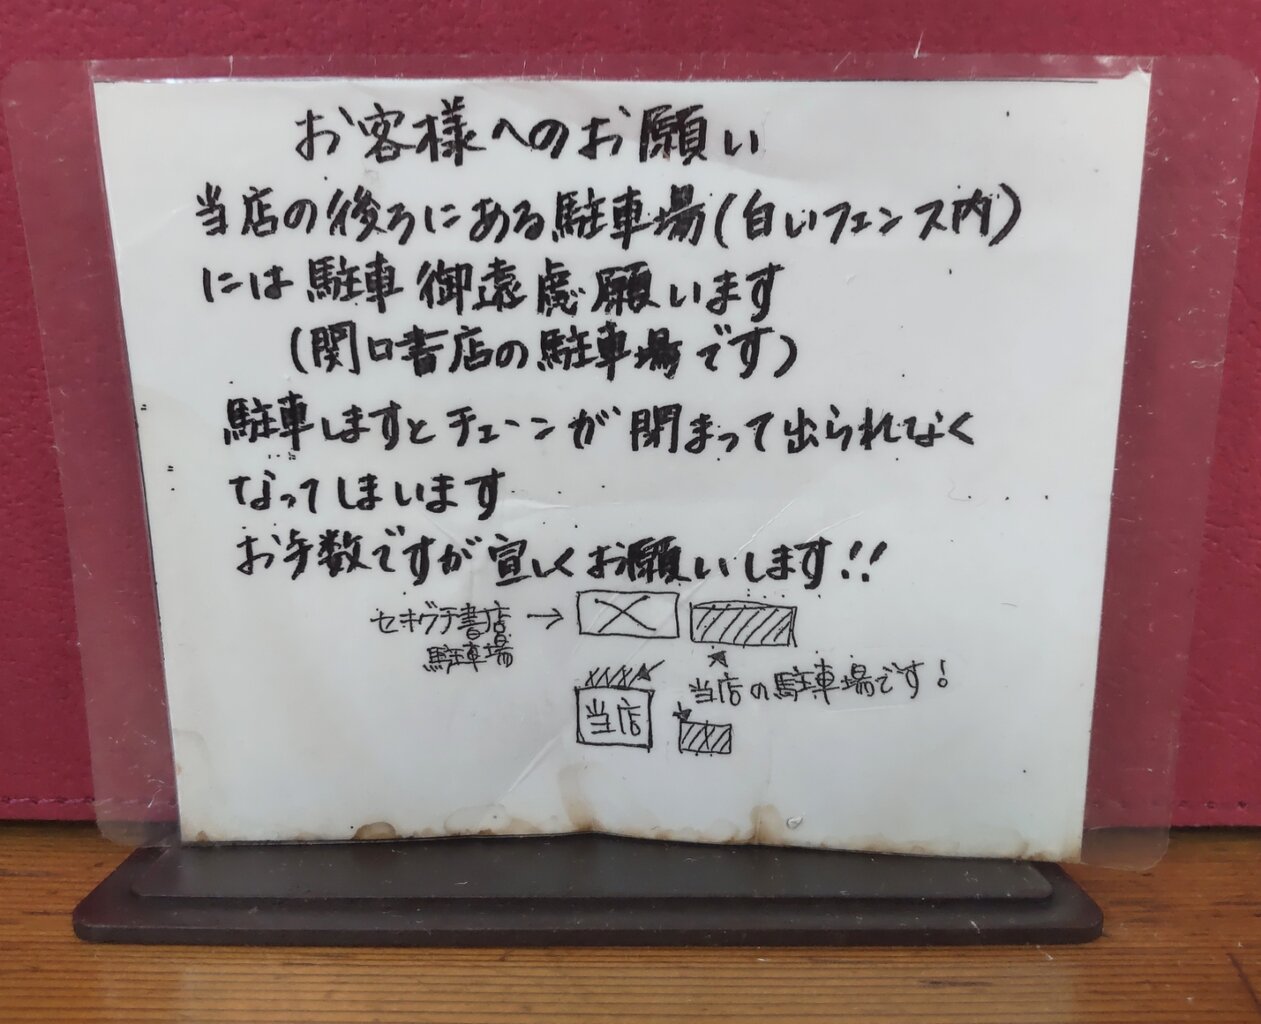 お客様へのお願い
当店の後ろにある駐車場(白いフェンス内)
には駐車御遠慮願います
(関口書店の駐車場です)
駐車しますとチェーンが閉まって出られなく
なってしまいます
お手数ですが宜しくお願いします!!
セキグチ書店→
駐車場
当店の駐車場です!
当店